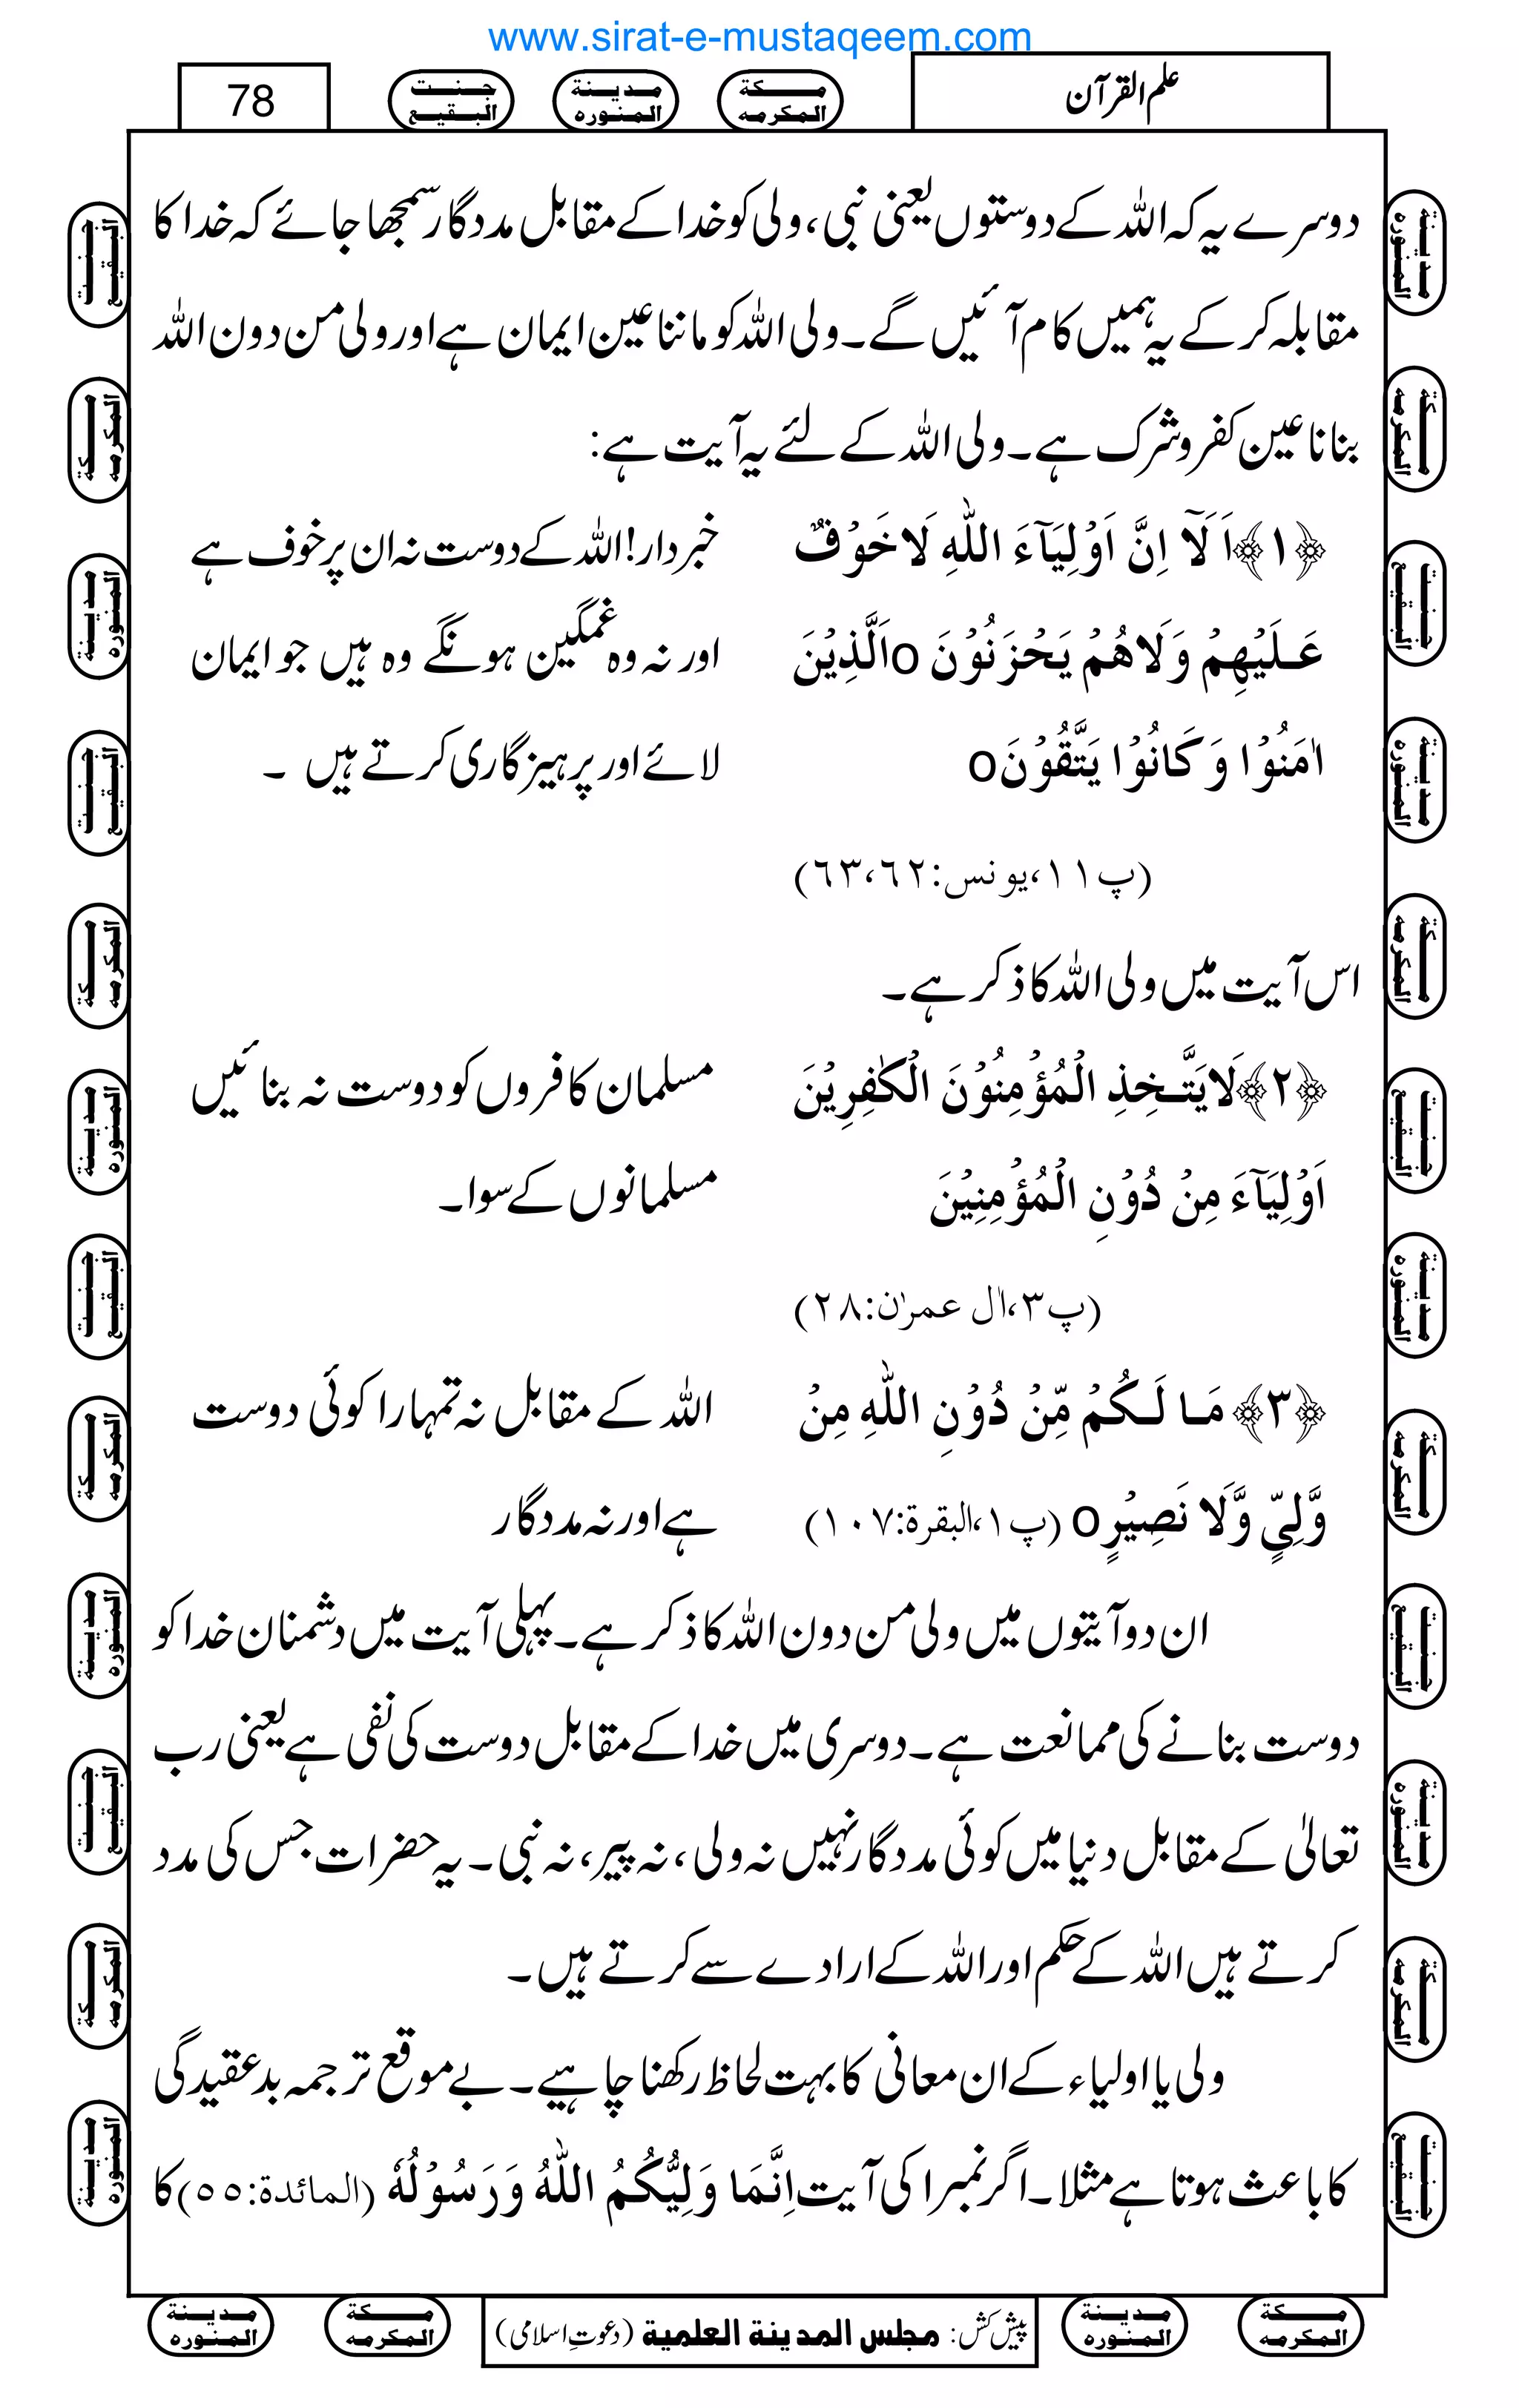 www.sirat-e-mustaqeem.com
علم القرآن
مكة المكرمه
مدينة المنوره
جنت البقيع
78
دوسرے یہ کہ اللہ کے دوستوں یعنی نبی، ولی کو خدا کے مقابل مددگار سمجھا جائے کہ خدا کا
مقابلہ کر کے یہ ہمیں کام آئیں گے۔ ولی اللہ کو ماننا عین ایمان ہے اور ولی من دون اللہ
بنانا عین کفر و شرک ہے۔ ولی اللہ کے لئے یہ آیت ہے:
﴿۱﴾ اَ لَآ اِنَّ اَوْلِیَآءَ اللّٰہِ لَا خَوْفٌ
عَلَیْہِمْ وَلَا ہُمْ یَحْزَنُوْنَ o اَلَّذِیْنَ
اٰمَنُوْا وَ کَانُوْا یَتَّقُوْنَ o
(پ۱۱،یونس:۶۲،۶۳)
خبردار! اللہ کے دوست نہ ان پر خوف ہے
اور نہ وہ غمگین ہونگے وہ ہیں جو ایمان
لائے اور پرہیزگاری کرتے ہیں ۔
اس آیت میں ولی اللہ کا ذکر ہے۔
﴿۲﴾ لَا یَتَّخِذِ الْمُؤْمِنُوْنَ الْکٰفِرِیْنَ
اَوْلِیَآءَ مِنْ دُوْنِ الْمُؤْمِنِیْنَ
(پ۳،اٰل عمرٰن:۲۸)
مسلمان کافروں کو دوست نہ بنائیں
مسلمانوں کے سوا۔
﴿۳﴾ مَا لَکُمْ مِّنْ دُوْنِ اللّٰہِ مِنْ
وَّلِیٍّ وَّلَا نَصِیْرٍ o (پ۱،البقرۃ:۱۰۷)
اللہ کے مقابل نہ تمہارا کوئی دوست
ہے اور نہ مددگار
ان دو آیتوں میں ولی من دون اللہ کا ذکر ہے۔ پہلی آیت میں دشمنان خدا کو
دوست بنانے کی ممانعت ہے۔ دوسری میں خدا کے مقابل دوست کی نفی ہے یعنی رب
تعالیٰ کے مقابل دنیا میں کوئی مددگار نہیں نہ ولی، نہ پیر، نہ نبی۔ یہ حضرات جس کی مدد
کرتے ہیں اللہ کے حکم اور اللہ کے ارادے سے کرتے ہیں۔
ولی یا اولیاء کے ان معانی کا بہت لحاظ رکھنا چاہیے۔ بے موقع ترجمہ بدعقیدگی
کا باعث ہوتا ہے مثلا۔ اگر نمبر ا کی آیت اِنَّمَا وَلِیُّکُمُ اللّٰہُ وَرَسُوْلُہٗ (المائدۃ:۵۵) کا
مكة المكرمه
مدينة المنوره
پیش کش: مجلس المدينة العلمية (دعوتِ اسلامی)
مكة المكرمه
مدينة المنوره